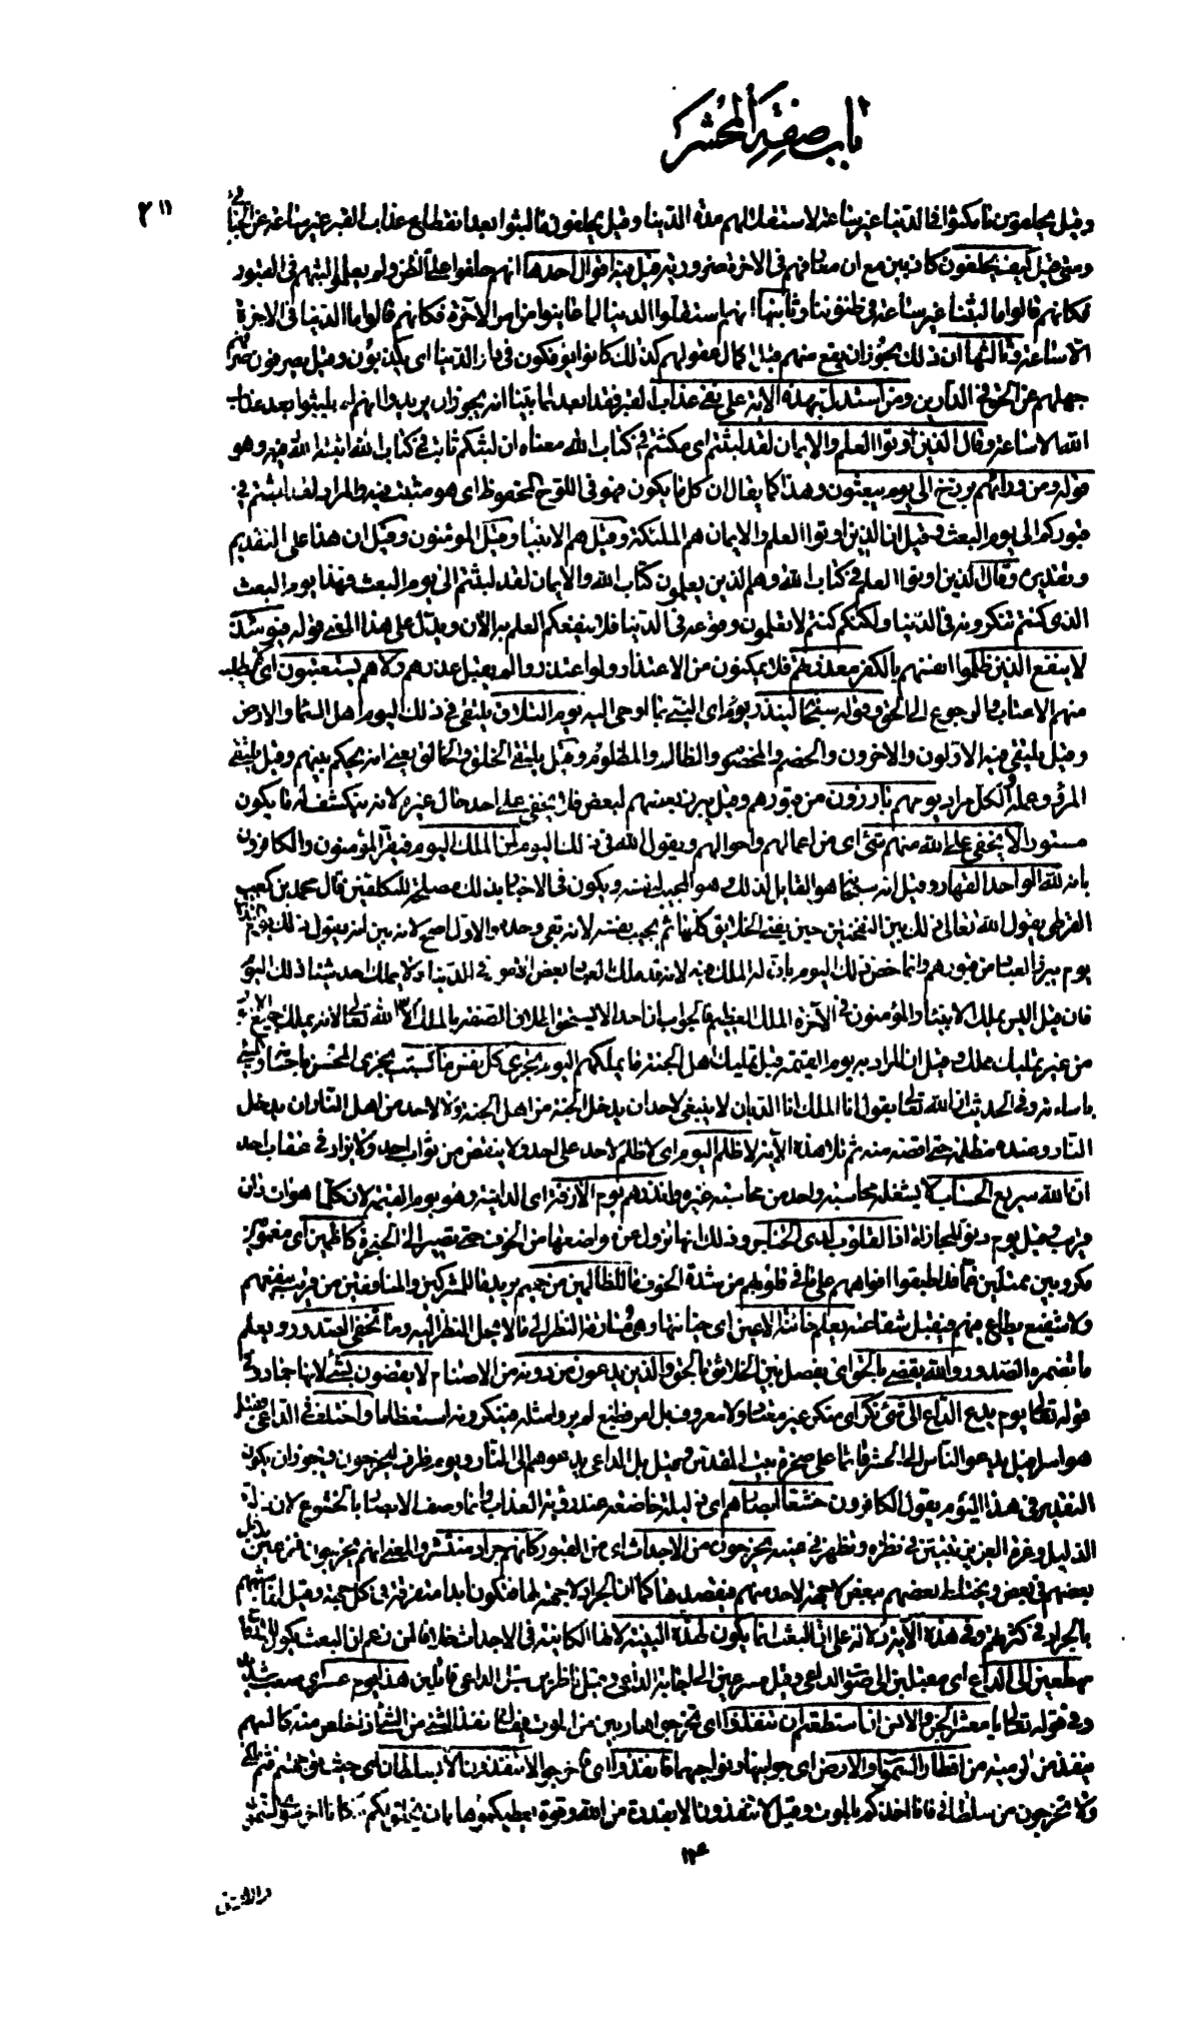 باب صفة المحشر
٢١١
وقيل يحلفون ما مكثوا في الدنيا غير ساعة لاستقلالهم مدة الدنيا وقيل يحلفون ما لبثوا بعد انقطاع عذاب القبر غير ساعة عن الجبائي
ومتى قيل كيف يحلفون كاذبين مع ان معارفهم في الاخرة ضرورية قيل فيه اقوال احدها انهم حلفوا على الظن ولم يعلموا لبثهم في القبور
فكانهم قالوا ما لبثنا غير ساعة في ظنوننا وثانيها انهم استقلوا الدنيا لما عاينوا من امر الآخرة فكانهم قالوا ما الدنيا في الاخرة
الا ساعة وثالثها ان ذلك يجوز ان يقع منهم قبل اكمال عقولهم كذلك كانوا يؤفكون في دار الدنيا اي يكذبون وقيل يصرفون صرفهم
جهلهم عن الحق في الدارين ومن استدل بهذه الاية على نفي عذاب القبر فقد ابعد لما بينا انه يجوز ان يريدوا انهم لم يلبثوا بعد عذاب
الله الا ساعة وقال الذين اوتوا العلم والايمان لقد لبثتم اي مكثتم في كتاب الله معناه ان لبثكم ثابت في كتاب الله اثبته الله فيه وهو
قوله ومن ورائهم برزخ الى يوم يبعثون وهذا كما يقال ان كل ما يكون فهو في اللوح المحفوظ اي هو مثبت فيه والمراد لقد لبثتم في
قبوركم الى يوم البعث وقيل ان الذين اوتوا العلم والايمان هم الملئكة وقيل هم الانبياء وقيل المؤمنون وقيل ان هذا على التقديم
وتقديره وقال الذين اوتوا العلم في كتاب الله وهم الذين يعلمون كتاب الله والايمان لقد لبثتم الى يوم البعث فهذا يوم البعث
الذي كنتم تنكرونه في الدنيا ولكنكم كنتم لا تعلمون وقوعه في الدنيا فلا ينفعكم العلم به الآن ويدل على هذا المعنى قوله فيومئذ
لا ينفع الذين ظلموا انفسهم بالكفر معذرتهم فلا يمكنون من الاعتذار ولو اعتذروا لم يقبل عذرهم ولا هم يستعتبون اي لا يطلب
منهم الاعتاب والرجوع الى الحق وقوله سبحانه لينذر يوم اي النبي بما اوحي اليه يوم التلاق يلتقي في ذلك اليوم اهل السماء والارض
وقيل يلتقي فيه الاولون والاخرون والخصم والمخصوم والظالم والمظلوم وقيل يلتقي الخلق والخالق يعني انه يحكم بينهم وقيل يلتقي
المرء وعمله والكل مراد يوم هم بارزون من قبورهم وقيل يبرز بعضهم لبعض فلا يخفى على احد حال غيره لانه ينكشف له ما يكون
مستورا لا يخفى على الله منهم شئ اي من اعمالهم واحوالهم ويقول الله في ذلك اليوم لمن الملك اليوم فيقر المؤمنون والكافرون
بانه لله الواحد القهار وقيل انه سبحانه هو القايل لذلك وهو المجيب لنفسه ويكون في الاخبار بذلك مصلحة للمكلفين قال محمد بن كعب
القرظي يقول الله تعالى ذلك بين النفختين حين يفني الخلايق كلها ثم يجيب نفسه لانه بقي وحده والاول اصح لانه بين انه يقول ذلك
يوم يبرز العباد من قبورهم وانما خص ذلك اليوم بان له الملك فيه لانه قد ملك العباد بعض الامور في الدنيا ولا يملك احد شيئا ذلك اليوم
فان قيل اليس يملك الانبياء والمؤمنون في الآخرة الملك العظيم فالجواب ان احدا لا يستحق اطلاق الصفة بالملك الا الله تعالى لانه يملك جميع
من غير تمليك مملك وقيل ان المراد به يوم القيمة قبل تمليك اهل الجنة ما يملكهم اليوم تجزى كل نفس ما كسبت يجزى المحسن باحسانه والمسئ
باساءته وفي الحديث ان الله تعالى يقول انا الملك انا الديان لا ينبغي لاحد ان يدخل الجنة من اهل الجنة ولا لاحد من اهل النار ان يدخل
النار وعنده مظلمة حتى اقصه منه ثم تلا هذه الآية لا ظلم اليوم اي لا ظلم لاحد على احد ولا ينقص من ثواب احد ولا يزاد في عقاب احد
ان الله سريع الحساب لا يشغله محاسبة واحد من محاسبة غيره وانذرهم يوم الآزفة اي الدانية وهو يوم القيمة لان كل ما هو آت دان
قريب وقيل يوم دنو المجازاة اذ القلوب لدى الحناجر وذلك انها تزول عن مواضعها من الخوف حتى تصير الى الحنجرة كاظمين اي مغمومين
مكروبين ممتلئين غما قد اطبقوا افواههم على ما في قلوبهم من شدة الخوف ما للظالمين من حميم يريد ما للمشركين والمنافقين من قريب ينفعهم
ولا شفيع يطاع فيهم فيقبل شفاعته يعلم خائنة الاعين اي خيانتها وهي مسارقة النظر الى ما لا يحل النظر اليه وما تخفي الصدور ويعلم
ما تضمره الصدور والله يقضي بالحق اي يفصل بين الخلائق بالحق والذين يدعون من دونه من الاصنام لا يقضون بشئ لانها جماد وفي
قوله تعالى يوم يدع الداع الى شئ نكر اي منكر غير معتاد ولا معروف بل امر فظيع لم يروا مثله فينكرونه استعظاما واختلف في الداعي فقيل
هو اسرافيل يدعو الناس الى الحشر قائما على صخرة بيت المقدس وقيل بل الداعي يدعوهم الى النار ويوم ظرف ليخرجون ويجوز ان يكون
التقدير في هذا اليوم يقول الكافرون خشعا ابصارهم اي ذليلة خاضعة عند رؤية العذاب وانما وصف الابصار بالخشوع لان ذلة
الذليل وعزة العزيز تتبين في نظره وتظهر في عينه يخرجون من الاجداث اي من القبور كانهم جراد منتشر والمعنى انهم يخرجون فزعين يدخل
بعضهم في بعض ويختلط بعضهم ببعض لا جهة لاحد منهم فيقصدها كما ان الجراد لا جهة لها فتكون ابدا متفرقة في كل جهة وقيل انما شبههم
بالجراد في كثرتهم وفي هذه الآية دلالة على ان البعث انما يكون لهذه البنية لانها الكائنة في الاجداث خلافا لمن زعم ان البعث يكون للارواح
مهطعين الى الداع اي مقبلين الى صوت الداعي وقيل مسرعين الى اجابة الداعي وقيل ناظرين قبل الداعي قائلين هذا يوم عسر اي صعب شديد
وفي قوله تعالى يا معشر الجن والانس ان استطعتم ان تنفذوا اي تخرجوا هاربين من الموت يقال نفذ الشئ من الشئ اذا خلص منه كالسهم
ينفذ من الرمية من اقطار السموات والارض اي جوانبها ونواحيهما فانفذوا اي فاخرجوا لا تنفذون الا بسلطان اي حيث توجهتم فثم ملكي
ولا تخرجون من سلطاني فانا اخذكم بالموت وقيل لا تنفذون الا بقدرة من الله وقوة يعطيكموها بان يخلق لكم
١٣٤